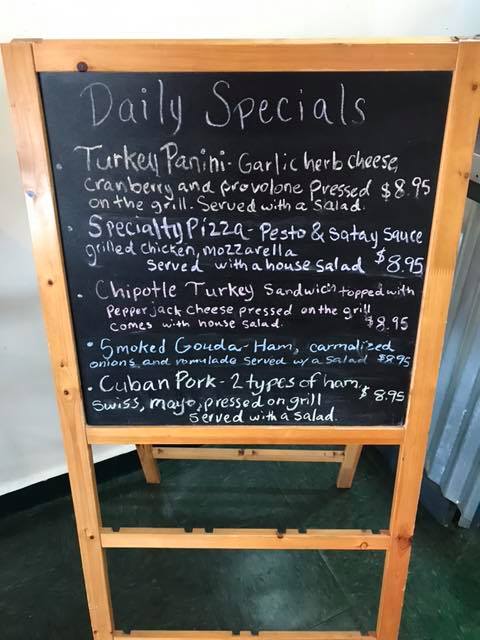 Daily Specials
• Turkey Panini - Garlic herb cheese,
cranberry and provolone pressed $8.95
on the grill. Served with a salad.
• Specialty Pizza - Pesto & Satay Sauce
grilled chicken, mozzarella
served with a house salad $8.95
• Chipotle Turkey Sandwich topped with
Pepper jack cheese pressed on the grill
comes with house salad. $8.95
• Smoked Gouda - Ham, carmalized
onions and romulade served w/a salad $8.95
• Cuban Pork - 2 types of ham, $8.95
Swiss, mayo, pressed on grill
served with a salad.